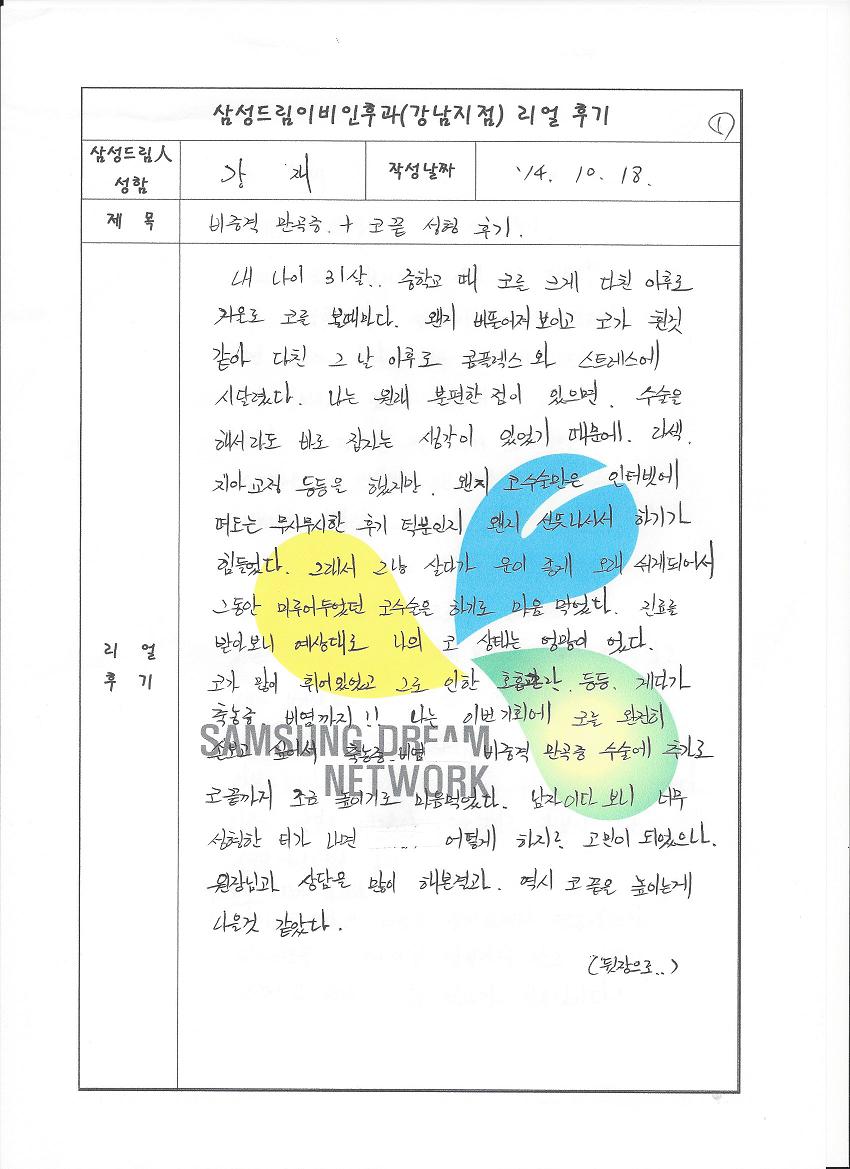 삼성드림이비인후과(강남지점) 리얼 후기
①
삼성드림人 성함
강 재
작성날짜
'14. 10. 18.
제 목
비중격 만곡증. + 코끝 성형 후기.
리 얼 후 기
내 나이 31살.. 중학교 때 코를 크게 다친 이후로
거울로 코를 볼때마다. 왠지 삐뚤어져 보이고 코가 휜것
같아 다친 그 날 이후로 콤플렉스와 스트레스에
시달렸다. 나는 원래 불편한 점이 있으면. 수술을
해서라도 바로 잡자는 생각이 있었기 때문에. 라섹.
치아교정 등등을 했지만. 왠지 코수술만은 인터넷에
떠도는 무시무시한 후기 덕분인지 왠지 선뜻나서서 하기가
힘들었다. 그래서 그냥 살다가 운이 좋게 오래 쉬게되어서
그동안 미루어두었던 코수술은 하기로 마음 먹었다. 진료를
받아보니 예상대로 나의 코 상태는 엉망이 었다.
코가 많이 휘어있었고 그로 인한 호흡곤란. 등등. 게다가
축농증. 비염까지!! 나는 이번기회에 코를 완전히
손보고 싶어서 축농증. 비염 비중격 만곡증 수술에 추가로
코끝까지 조금 높이기로 마음먹었다. 남자이다 보니 너무
성형한 티가 나면 ..... 어떻게 하지? 고민이 되었으나.
원장님과 상담을 많이 해본결과. 역시 코끝을 높이는게
나을것 같았다.
(뒷장으로..)
SAMSUNG DREAM
NETWORK